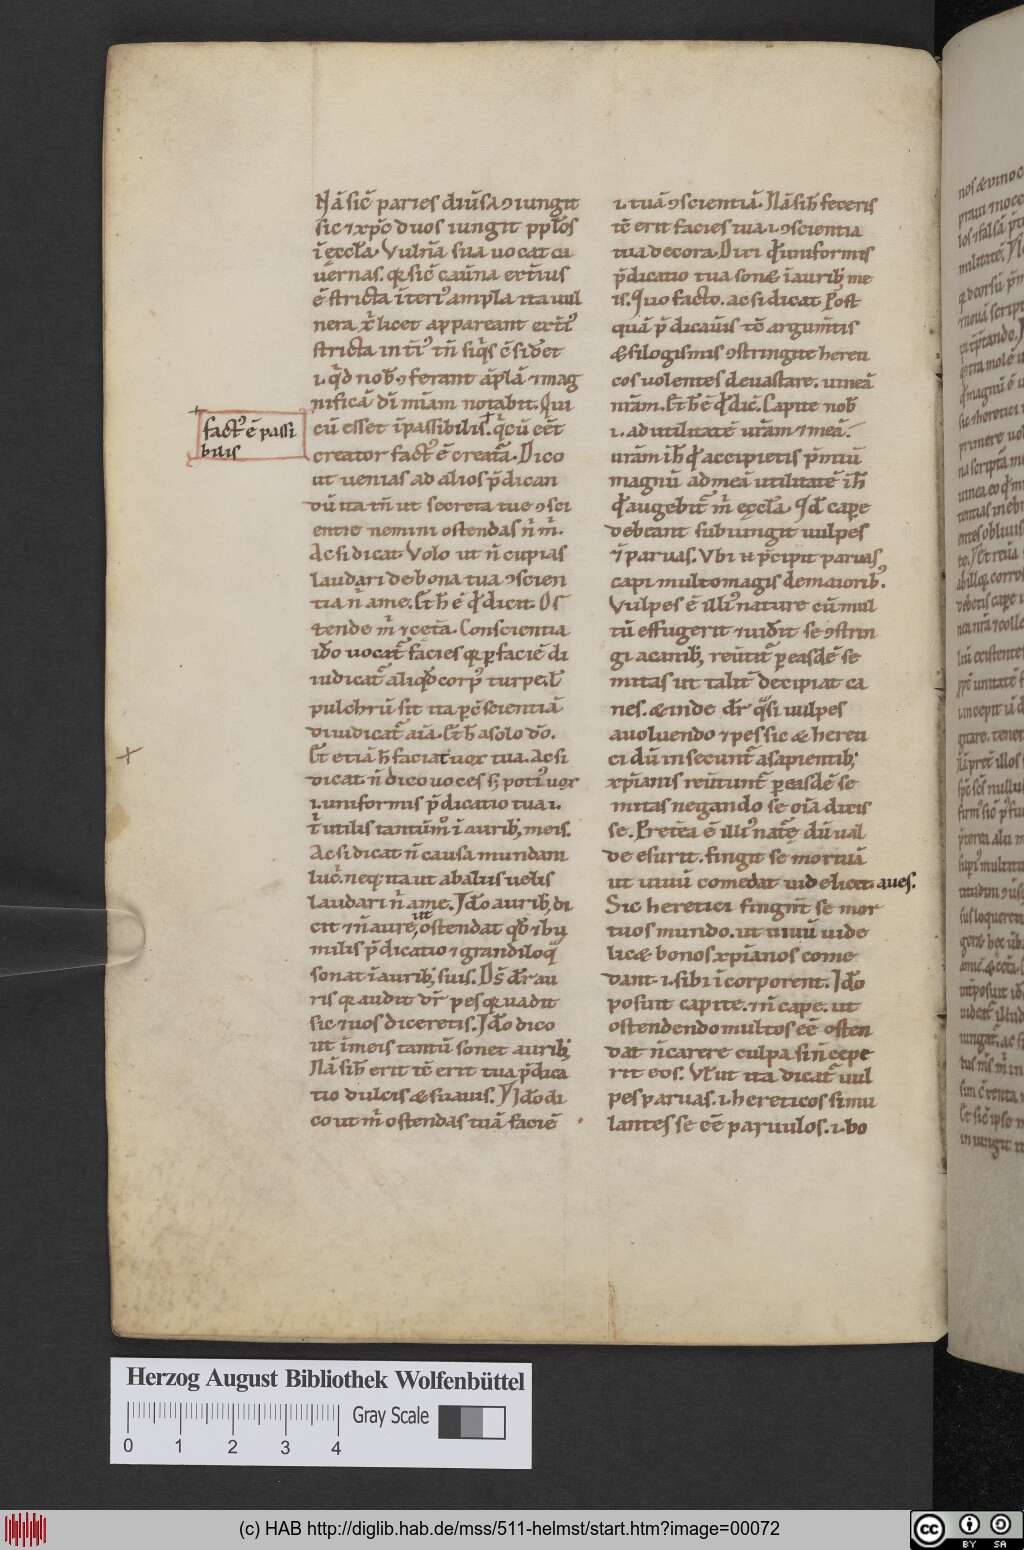 Nā sic̄ paries diūsa ꝯiungit
sic ⁊ xp̄c duos iungit ppłos
ī ęccła. Vulnā sua uocat ca
uernas. qa sic̄ cauna ext̄ius
ē stricta īteriꝰ ampla ita uul
nera xp̄i licet appareant ext̄iꝰ
stricta int̄iꝰ tn̄ siqͥs ꝯsidet
.i. qͥd nob̄ ꝯferant āplā ⁊ mag
nificā di miām notabit. Qui
cū esset īpassibilis. qͥcū eēt
creator factꝰ ē creatᷓa. Dico
ut uenias ad alios p̄dican
dū ita tn̄ ut secreta tue ꝯsci
entie nemini ostendas nͥ mͥ.
Ac si dicat Volo ut n̄ cupias
laudari de bona tua ꝯscien
tia nͥ a me. Et h̄ ē qd̄ dicit. Os
tende mͥ ⁊ ceta. Conscientia
ido uocatᷓ facies qa p̱ faciē di
iudicatᷓ aliqd̄ corpꝰ turpe. ł
pulchrū sit ita p̱ cscientiā
diiudicatᷓ aīā. Et h̄ a solo do.
Et etiā h̄ faciat uox tua. Ac si
dicat n̄ dico uoces sꝫ potiꝰ uox
.i. uniformis p̄dicatio tua .i.
ī utilis tantūm̊ ī auribꝫ meis.
Ac si dicat n̄ causa mundani
lucͥ. neqꝫ ita ut ab aliis uelis
laudari nͥ a me. Ido auribꝫ di
cit ⁊ n̄ aure, ut ostendat qd̄ ⁊ hu
milis p̄dicatio ⁊ grandiloqͣ
sonat ī auribꝫ suis. Ds̄ dr̄ au
ris qa audit dr̄ pes qa uadit
sic ⁊ uos diceretis. Ido dico
ut ī meis tantū sonet auribꝫ
Nā si h̄ erit tc̄ erit tua p̄dica
tio dulcis & suauis. Ido di
co ut mͥ ostendas tuā faciē
factꝰ ē passi
bilis
.i. tuā ꝯscientiā. Nā si h̄ feceris
tc̄ erit facies tua .i. ꝯscientia
tua decora. Dixi qd̄ uniformis
p̄dicatio tua sonꝫ ī auribꝫ me
is. Quo facto. ac si dicat Post
quā p̄dicauis tc̄ argumt̄is
& silogismis ꝯstringite hereti
cos uolentes deuastare. uineā
nrām. Et h̄ ē qd̄ dic̄. Capite nob̄
.i. ad utilitatē urām ⁊ meā.
urām ī h̄ qd̄ accipietis p̄miū
magnū ad meā utilitatē ī h̄
qd̄ augebitᷓ mͥ ęccła. Qd̄ cape
debeant subiungit uulpes
⁊ paruas. Vbi ū p̄cipit paruas
capi multo magis de maioribꝰ.
Vulpes ē illiꝰ nature cū mul
tū effugerit ⁊ uidit se ꝯstrin
gi a canibꝫ reūtitᷓ p̱ easdē se
mitas ut talit̄ decipiat ca
nes. & inde dr̄ qͣsi uulpes
auoluendo ⁊ pes sic & hereti
ci dū insecuntᷓ a sapientibꝫ
xp̄ianis reūtuntᷓ p̱ easdē se
mitas negando se oīa dixis
se. Preterea ē illiꝰ natᷓę dū ual
de esurit. fingit se mortuā
ut uiuū comedat uidelicet aues.
Sic heretici fingunt se mor
tuos mundo. ut uiuū uide
licꝫ bonos xp̄ianos come
dant .i. sibi īcorporent. Ido
posuit capite. ⁊ n̄ cape. ut
ostendendo multos eē osten
dat n̄ carere culpa si n̄ cepe
rit eos. Vł ut ita dicatᷓ uul
pes paruas .i. hereticos simu
lantes se eē paruulos .i. bo
Herzog August Bibliothek Wolfenbüttel
Gray Scale
0 1 2 3 4
(c) HAB http://diglib.hab.de/mss/511-helmst/start.htm?image=00072
cc BY SA